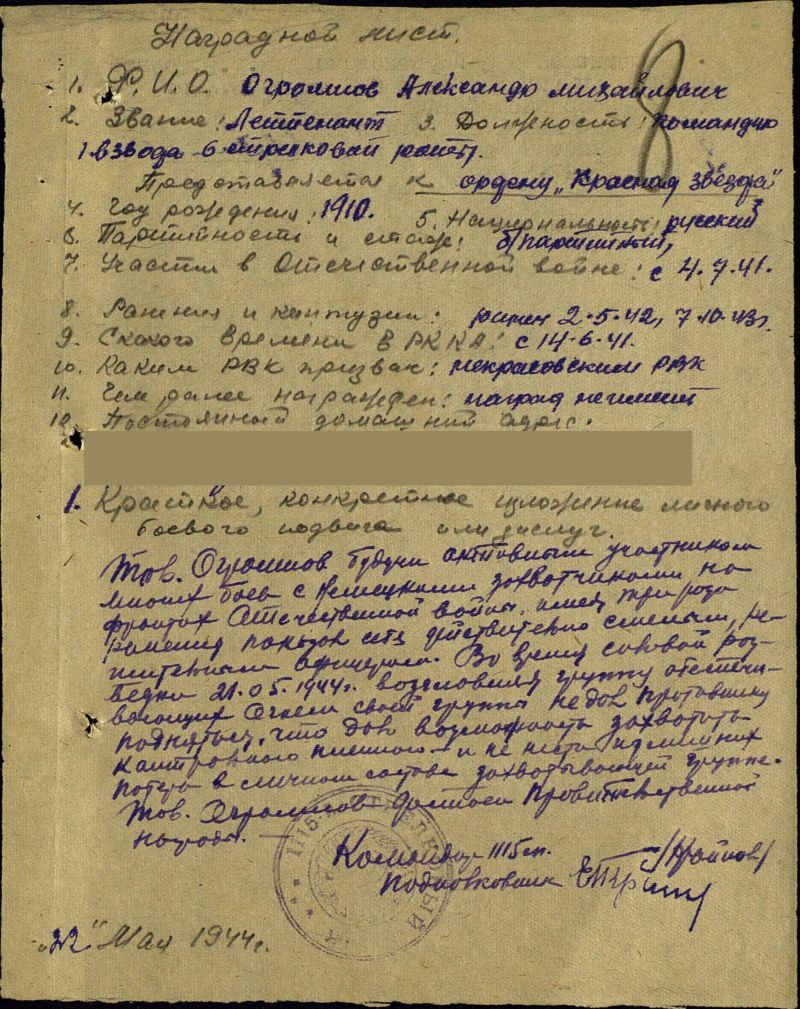 Наградной лист.
8
1. Ф.И.О. Огролисов Александр Михайлович
2. Звание: Лейтенант 3. Должность: Командир
1 взвода 6 стрелковой роты.
Представляется к ордену "Красная звезда"
4. Год рождения: 1910. 5. Национальность: русский
6. Партийность и стаж: б/партийный,
7. Участие в Отечественной войне: с 4.7.41.
8. Ранения и контузии: ранен 2.5.42, 7.10.43г.
9. С какого времени в РККА: с 14.6.41.
10. Каким РВК призван: Некрасовским РВК
11. Чем далее награжден: наград не имеет
12. Постоянный домашний адрес.
1. Краткое, конкретное изложение личного
боевого подвига или заслуг.
Тов. будучи активным участником
многих боев с Немецкими захватчиками на
фронтах Отечественной войны, имея три рода
ранения показал себя действительно смелым, ре-
шительным офицером. Во время силовой раз-
ведки 21.05.1944г. возглавлял группу обеспечи-
вающих Огнем своей группы не дав противнику
подняться, что дав возможность захватить
контрольного пленного и не нести излишних
потерь в личном составе захватывающей группе.
Тов. достоен Правительственной
награды.
Командир 1115 сп.
Подполковник
"22" Мая 1944г.